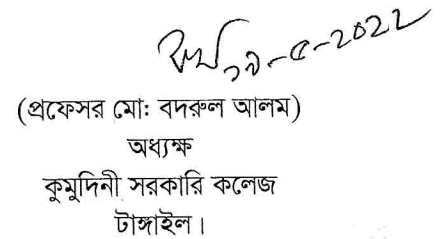 ১৯-৫-2022
(প্রফেসর মো: বদরুল আলম)
অধ্যক্ষ
কুমুদিনী সরকারি কলেজ
টাঙ্গাইল।